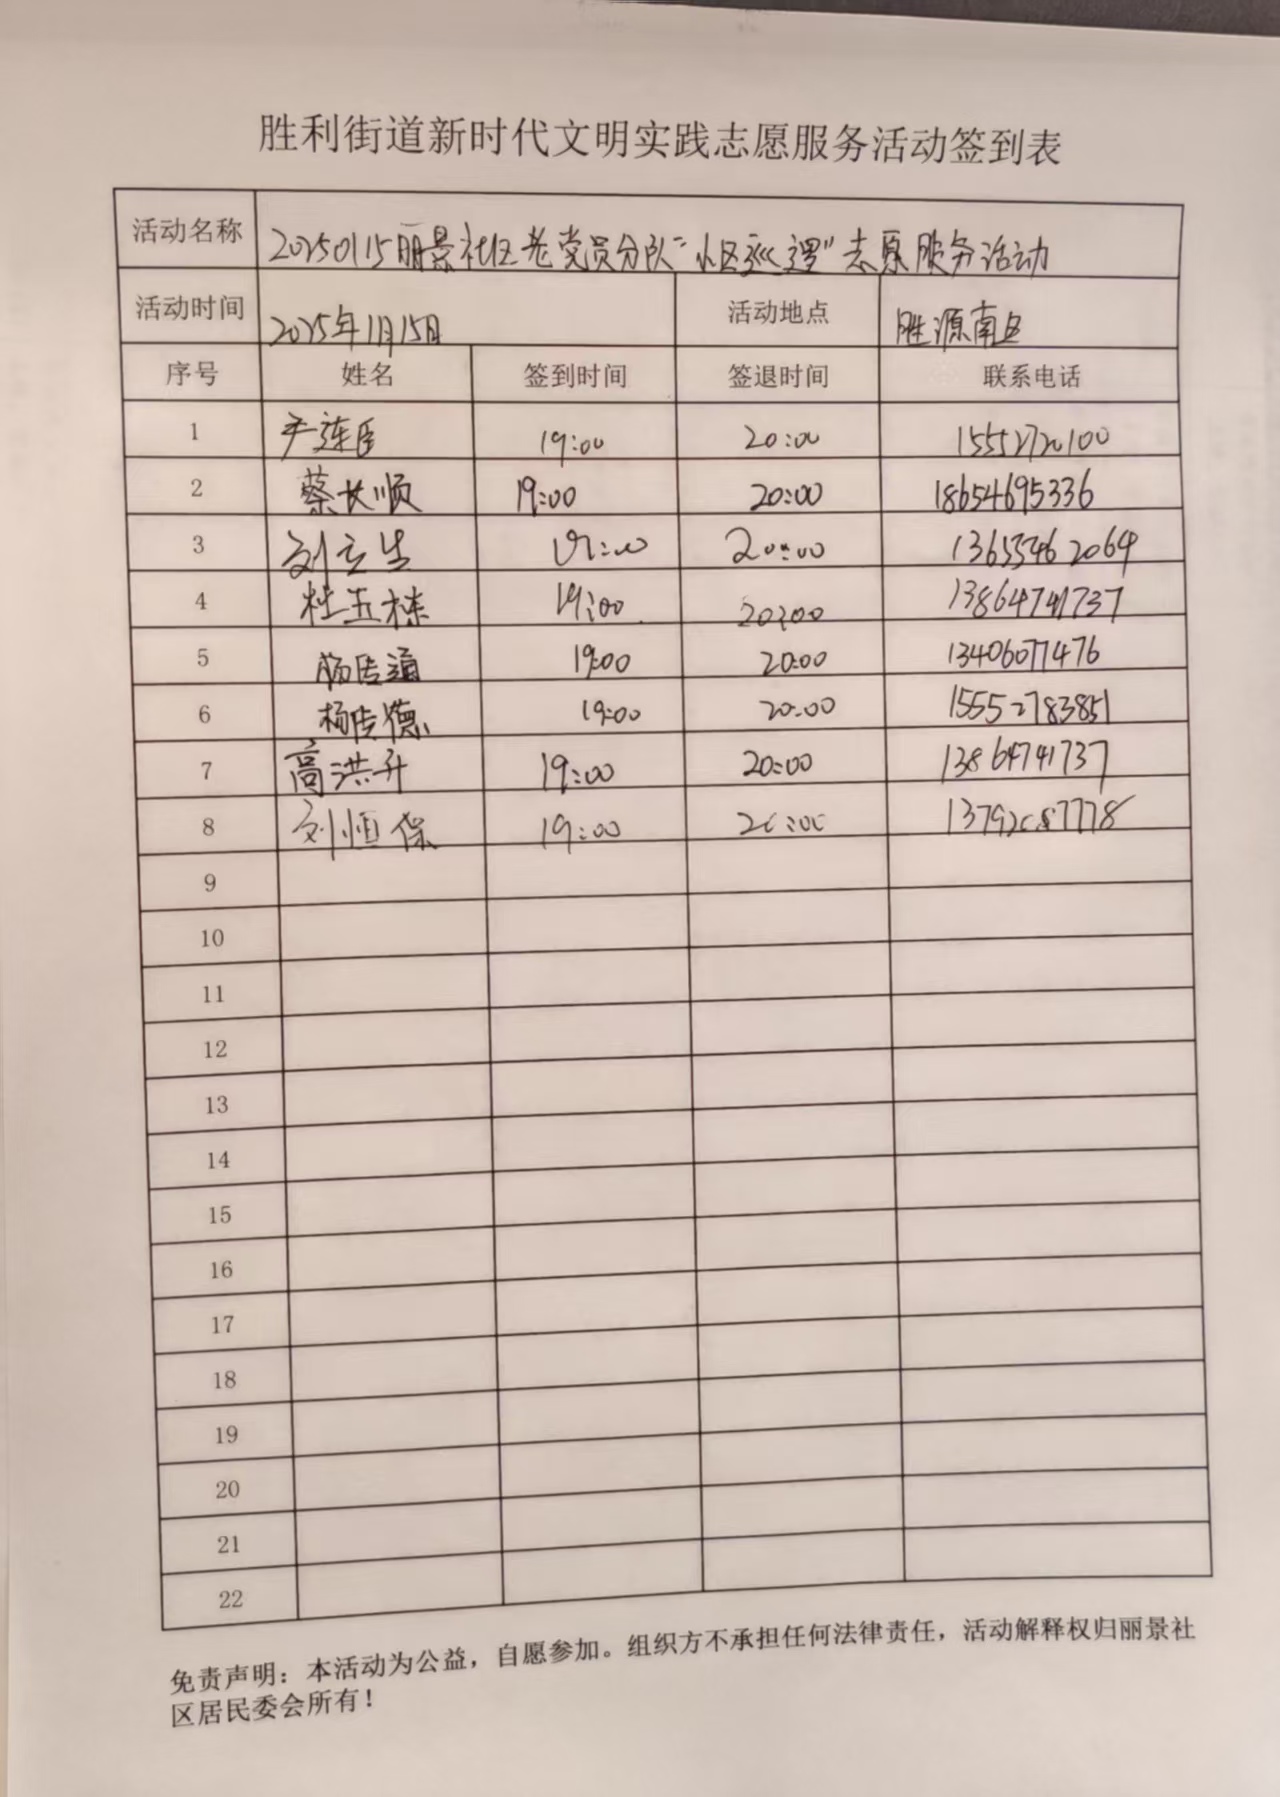 胜利街道新时代文明实践志愿服务活动签到表
活动名称 20250115丽景社区老党员分队"小区巡逻"志愿服务活动
活动时间 2025年1月15日 活动地点 胜源南区
序号 姓名 签到时间 签退时间 联系电话
1 尹连臣 19:00 20:00 15552720100
2 蔡长顺 19:00 20:00 18654695336
3 刘立生 19:00 20:00 13655462064
4 杜玉栋 19:00 20:00 13864741737
5 杨传通 19:00 20:00 13406077476
6 杨传德 19:00 20:00 15552783851
7 高洪升 19:00 20:00 13864741737
8 刘恒保 19:00 20:00 13792087778
9
10
11
12
13
14
15
16
17
18
19
20
21
22
免责声明：本活动为公益，自愿参加。组织方不承担任何法律责任，活动解释权归丽景社
区居民委会所有！